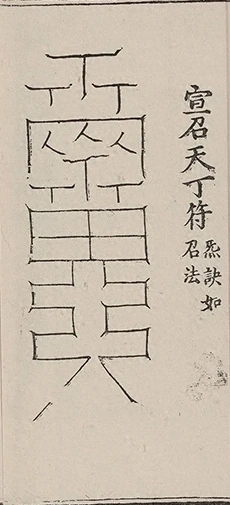 宣召天丁符
炁訣如
召法